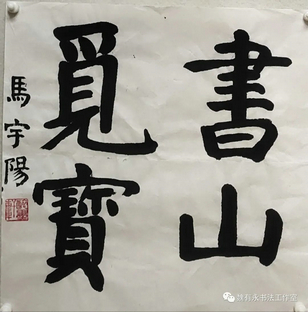 書山
覓寶
馬宇陽
魏有永书法工作室